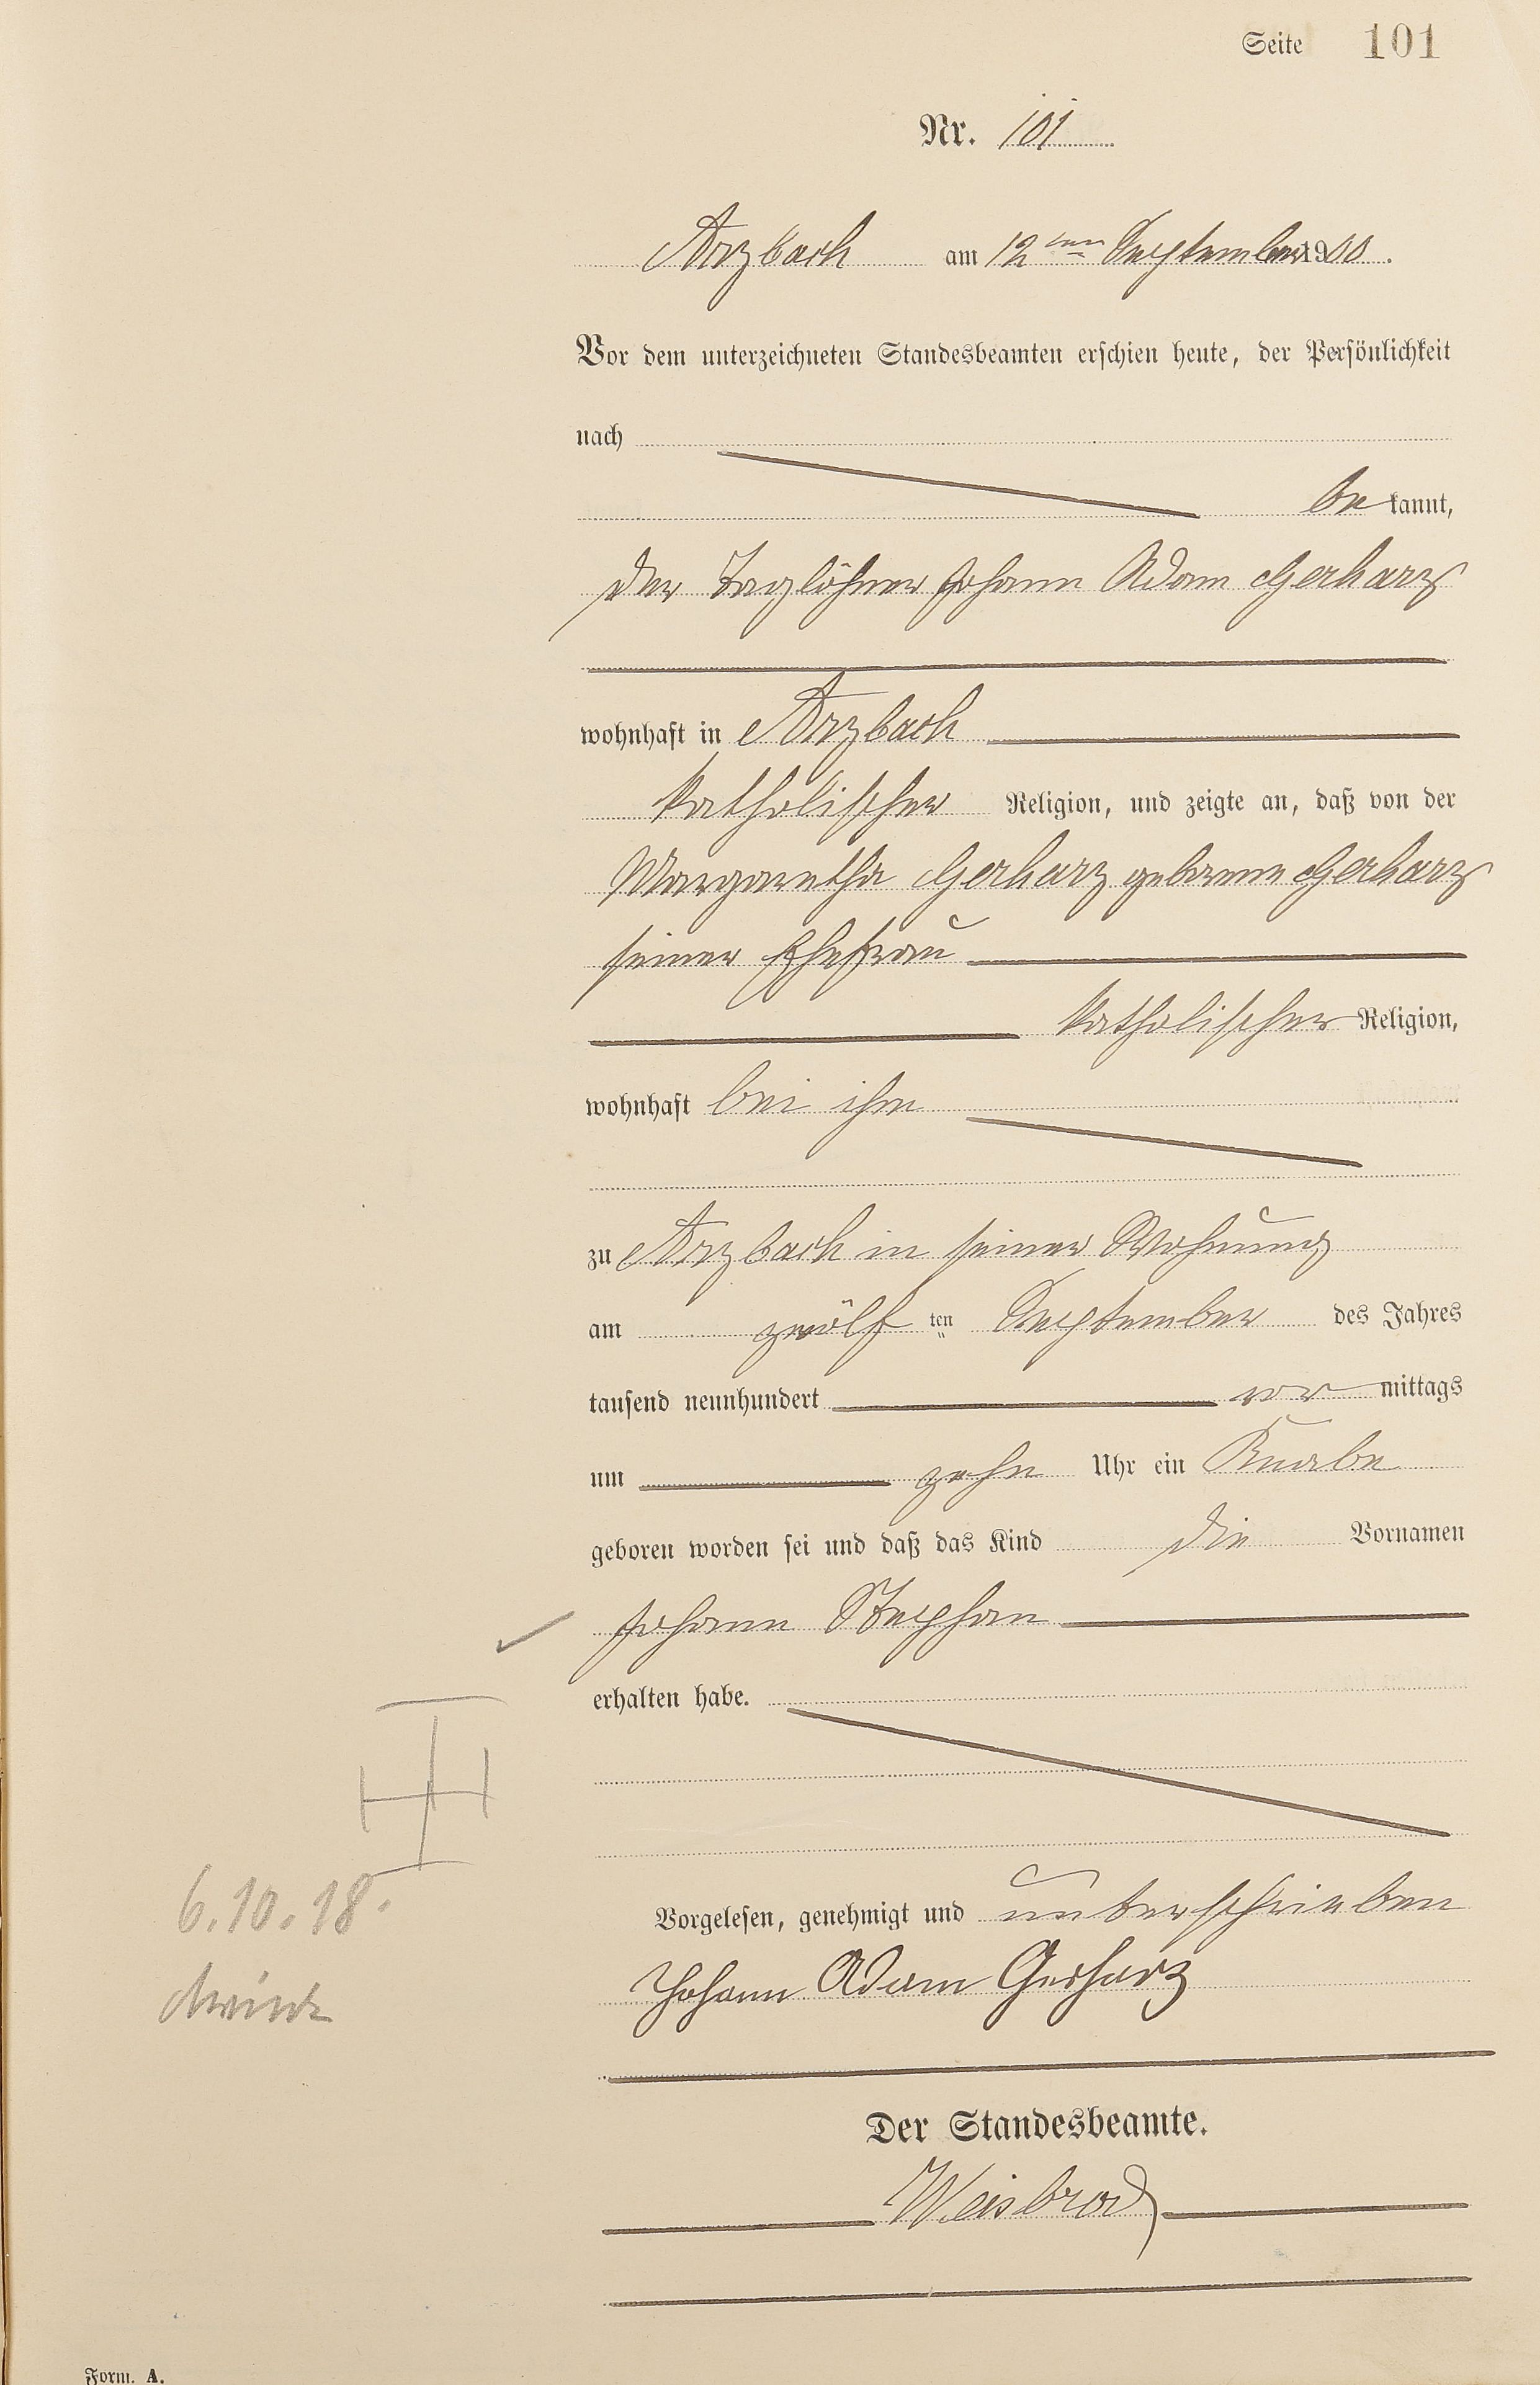 Seite 101
Nr. 101
Arzbach am 12ten September 1900.
Vor dem unterzeichneten Standesbeamten erschien heute, der Persönlichkeit
nach
bekannt,
der Taglöhner Johann Adam Gerharz
wohnhaft in Arzbach
katholischer Religion, und zeigte an, daß von der
Margaretha Gerharz geborene Gerharz
seiner Ehefrau
katholischer Religion,
wohnhaft bei ihm
zu Arzbach in seiner Wohnung
am zwölf ten September des Jahres
tausend neunhundert vor mittags
um zehn Uhr ein Knabe
geboren worden sei und daß das Kind die Vornamen
Johann Stephan
erhalten habe.
6.10.18.
Vorgelesen, genehmigt und unterschrieben
Johann Adam Gerharz
Der Standesbeamte.
Weisbrod
Form. A.